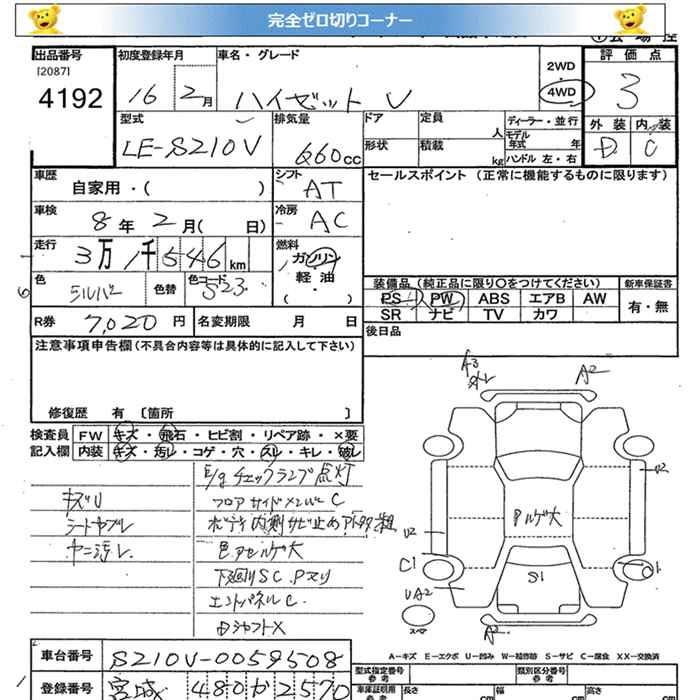 完全ゼロ切りコーナー
出品番号
[2087]
4192
初度登録年月
16 2月
車名・グレード
ハイゼット V
2WD
・
4WD
評価点
3
外装 内装
D C
型式
LE-S210V
排気量
660cc
ドア
定員 人
形状
積載 kg
ディーラー・並行
モデル年式 年
ハンドル 左・右
車歴
自家用・( )
シフト
AT
セールスポイント (正常に機能するものに限ります)
車検
8年 2月( 日)
冷房
AC
走行
3万1千546km
燃料
ガソリン
軽・油
( )
色
シルバー
色替
色コード
S23
装備品 (純正品に限り〇をつけてください)
新車保証書
PS PW ABS エアB AW
SR ナビ TV カワ
有・無
R券
7,020円
名変期限 月 日
後日品
注意事項申告欄 (不具合内容等は具体的に記入して下さい)
修復歴 有 〔箇所 〕
検査員記入欄
FW キズ・飛石・ヒビ割・リペア跡・×要
内装 キズ・汚レ・コゲ・穴・スレ・キレ・破レ
E/gチェックランプ点灯
キズU
フロアサイドメンバーC
シートヤブレ
ヤニ汚レ
下廻りSC
エンドパネルC
A2
A2
U2
U2
C1
UA2
S1
スペア
A2
A-キズ E-エクボ U-凹み W-補修跡 S-サビ C-腐食 XX-交換済
車台番号
S210V-0059508
型式指定番号
参考
類別区分番号
参考
登録番号
宮城 480 か 2570
車庫証明用
参考
長さ cm
幅 cm
高さ cm